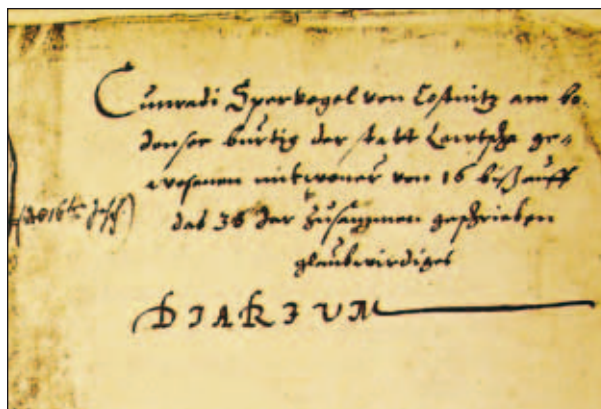 Cunradi Spervogel von Costnitz am bo-
densee burtig der statt Leutscha ge-
wesenen mitwoner von 16 biß auff
das 36 Jar zusammen geschrieben
glaubwirdiges
DIARIUM